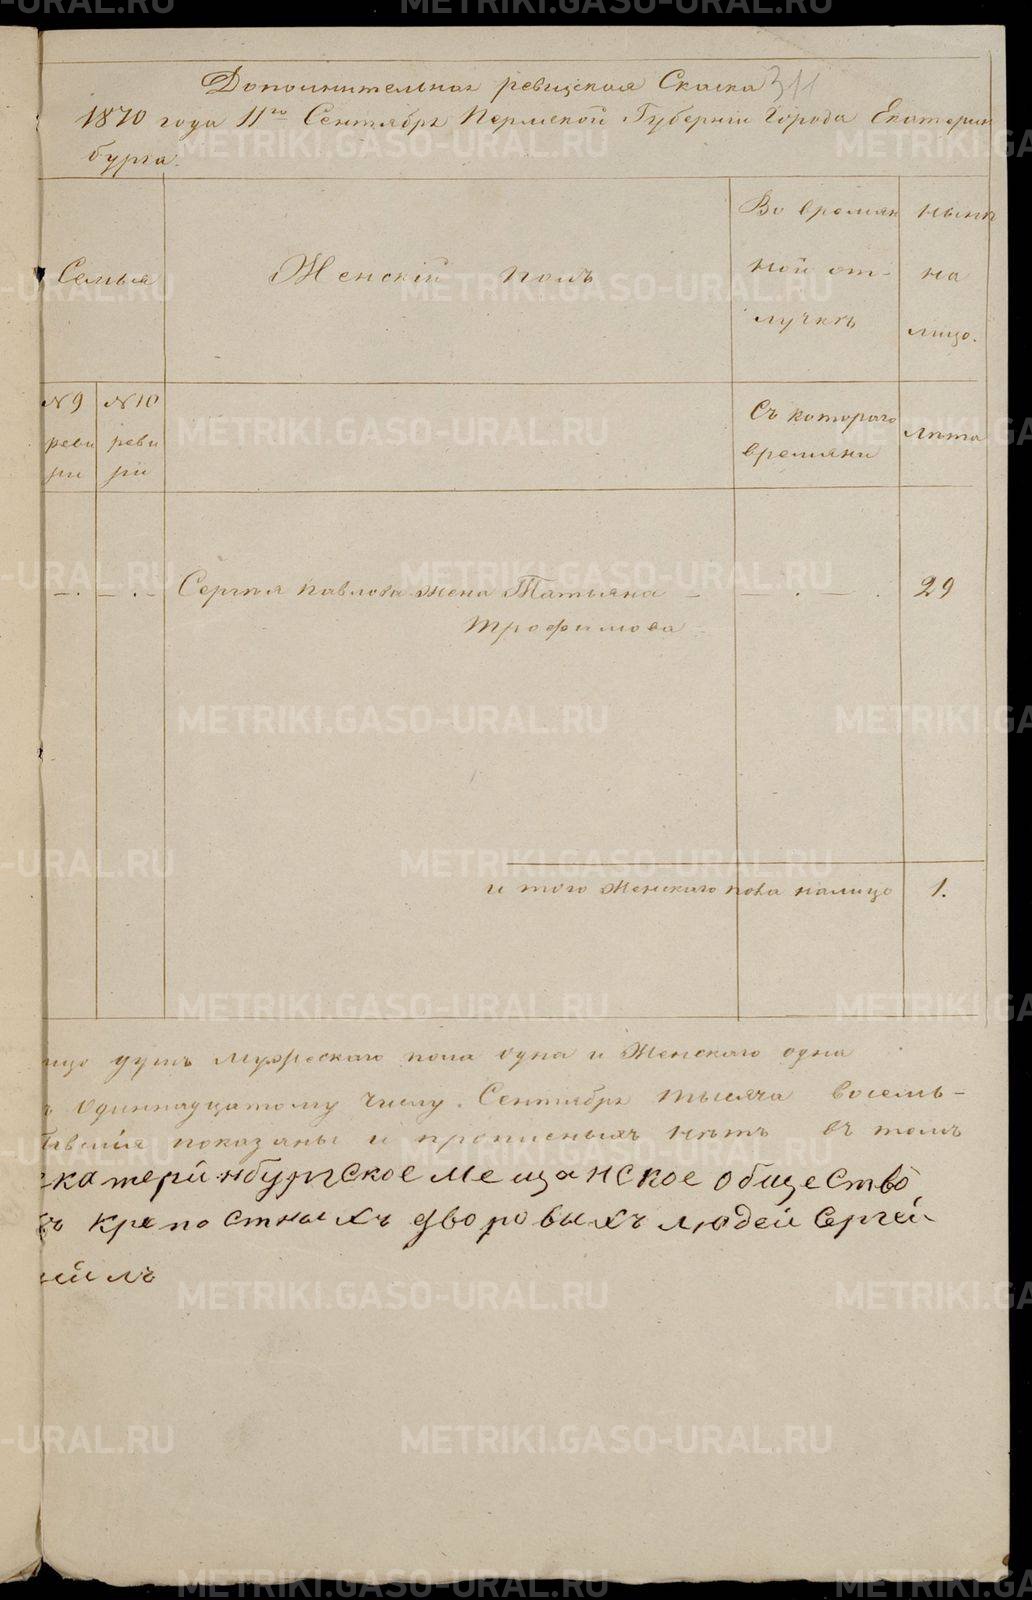 Дополнительная ревизская Сказка 311
1870 года 11го Сентября Пермской Губернiи Города Екатерин
бурга.
Семья
Женскiй полъ
Во времян
ной от-
лучкѣ
нынѣ
на
лицо.
№9
реви
зiи
№10
реви
зiи
Съ котораго
времяни
Лѣта
Сергѣя Павлова жена Татьяна
Трофимова
29
и того женскаго пола налицо 1.
ицо душъ мужескаго пола одна и Женскаго одна
одиннадцатому числу Сентября тысяча восемь-
показаны и прописныхъ нѣтъ въ томъ
катеринбургское мещанское общество
крепостныхъ дворовыхъ людей Сергей
METRIKI.GASO-URAL.RU